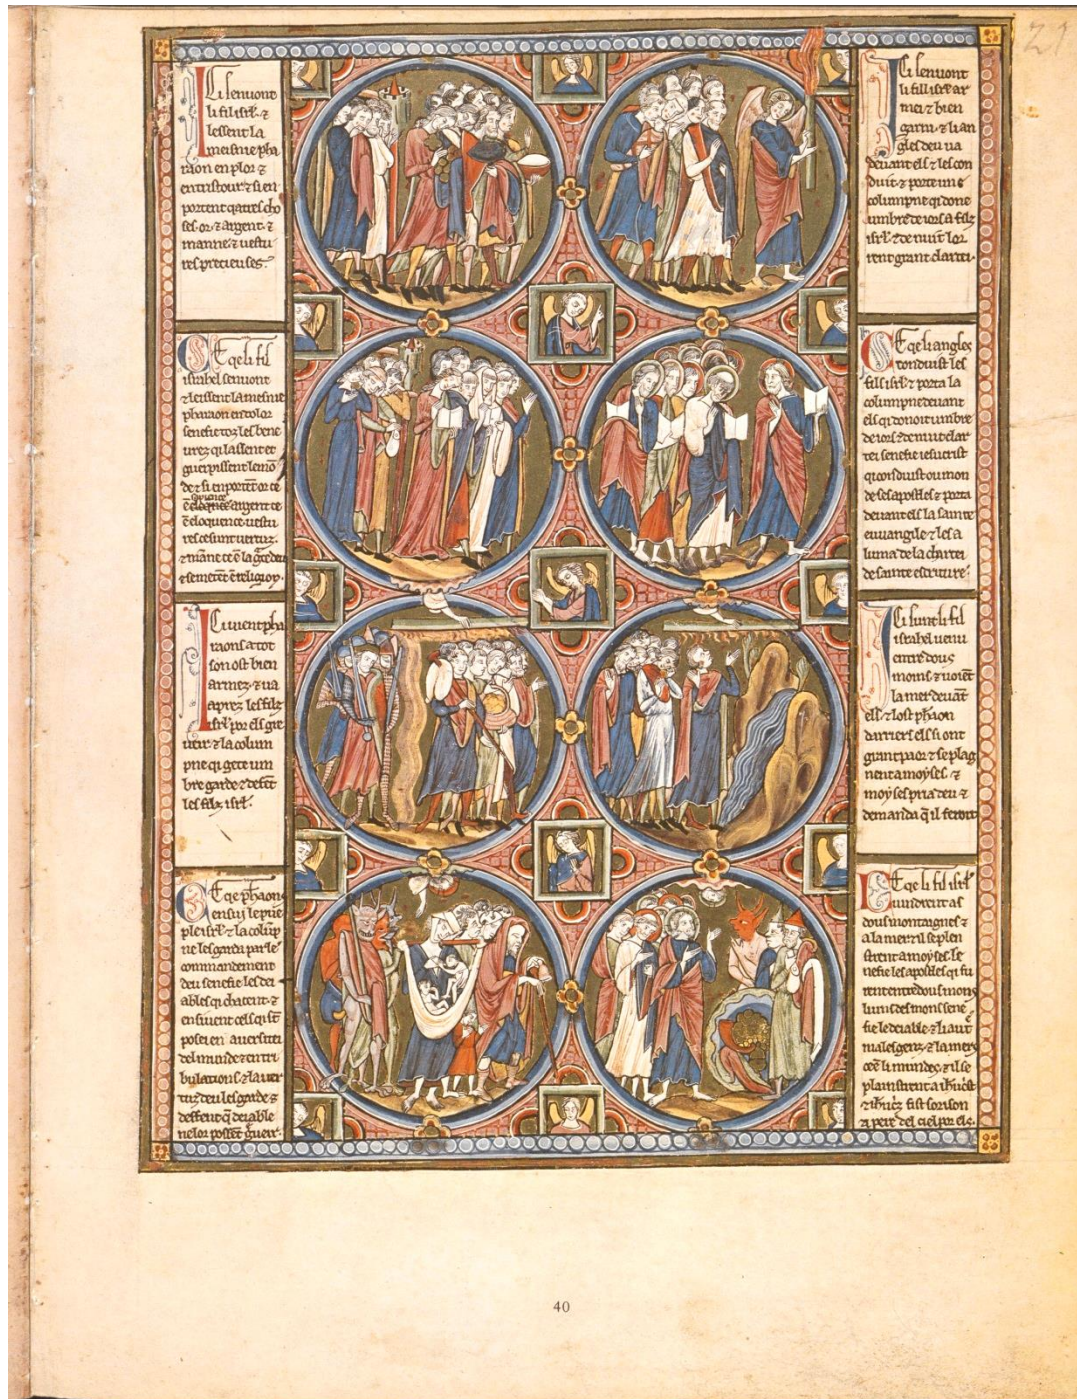 Ici sen vont
li fil isrl' ⁊
lessent la
meisnie pha
raon en plor ⁊
en tristour ⁊ si en
portent qatres cho
ses. or ⁊ argent. ⁊
manne ⁊ vestu
res precieuses.
Ce qe li fil
israhel sen vont
⁊ leissent la mesnie
pharaon en dolor
senefie toz les bene
urez qi lassent et
guerpissent le mon
de ⁊ si en portent
argent ce
e eloquence vestu
res ce sunt vertuz
Ici vient pha
raons a tot
son ost bien
armez ⁊ va
aprez les filz
isrl' por els gre
ver ⁊ la colum
pne qi gete um
bre garde ⁊ defent
les filz isrl'.
Ce qe pharaons
ensuj le pue
ple isrl' ⁊ la colup
ne les garda par le
commandement
deu senefie les dei
ables qi chacent ⁊
ensivent cels qi st
posei en aversitei
del munde ⁊ en tri
bulations ⁊ la ver
tuz deu les garde ⁊
deffent qe deiable
ne lor possent grever.
Ici sen vont
li fill isrl' ar
mei ⁊ bien
garni ⁊ li an
gles deu va
devant els ⁊ les con
duit ⁊ porte une
columpne qi done
umbre de iors a filz
isrl' ⁊ de nuit lor
rent grant clartei.
Ce qe li angles
conduist les
fil isrl' ⁊ porta la
columpne devant
els qi donoit umbre
de iors ⁊ de nuit clar
tei senefie iesucrist
qi conduist ou mon
de ses apostles ⁊ porta
devant els la sainte
euvangile ⁊ les a
luma de la chartei
de sainte escriture.
Ici sunt li fil
israhel venu
entre dous
mons ⁊ voient
la mer devant
els ⁊ lost pharaon
darriers els si ont
grant paor ⁊ se plag
nent a moyses. ⁊
moyses pria deu ⁊
demanda q' il feront
Ce qe li fil isrl'
vindrent as
dous montaignes ⁊
a la mer ⁊ il se plen
strent a moyses. se
nefie les apostles qi fu
rent entre dous mons
luns des mons sene
fie le deiable ⁊ li autre
males genz. ⁊ la mers
ce e li mundes. ⁊ il se
plainstrent a ihucrist
⁊ ihucrist fist sorison
a pere del ciel por els.
21
40